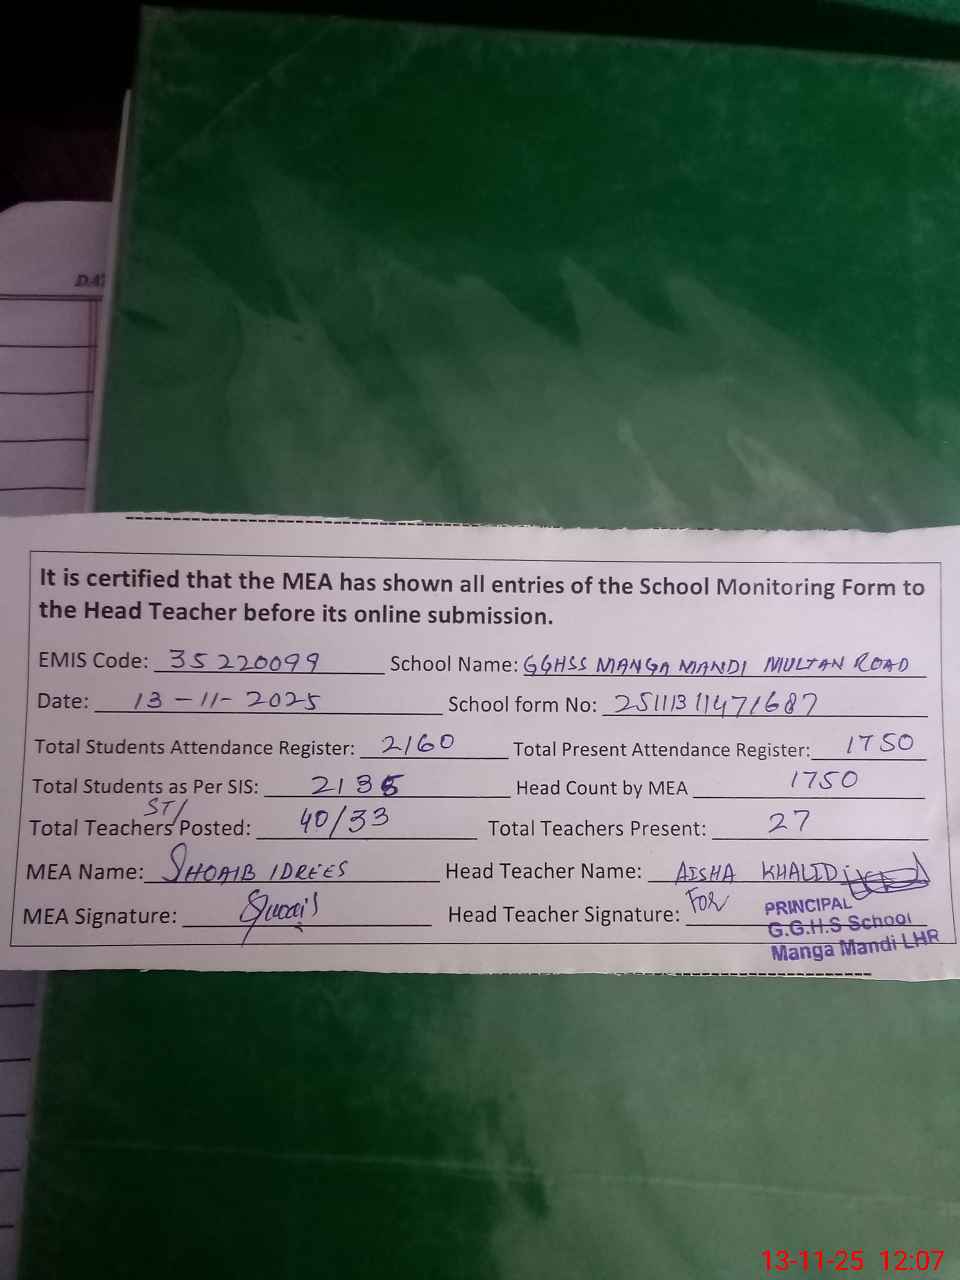 DAT
It is certified that the MEA has shown all entries of the School Monitoring Form to
the Head Teacher before its online submission.
EMIS Code: 35220099 School Name: GGHSS MANGA MANDI MULTAN ROAD
Date: 13-11-2025 School form No: 2511131147 1687
Total Students Attendance Register: 2160 Total Present Attendance Register: 1750
Total Students as Per SIS: 2135 Head Count by MEA 1750
ST/
Total Teachers Posted: 40/33 Total Teachers Present: 27
MEA Name: SHOAIB IDREES Head Teacher Name: AISHA KHALID
MEA Signature: Head Teacher Signature: For
PRINCIPAL
G.G.H.S School
Manga Mandi LHR
13-11-25 12:07